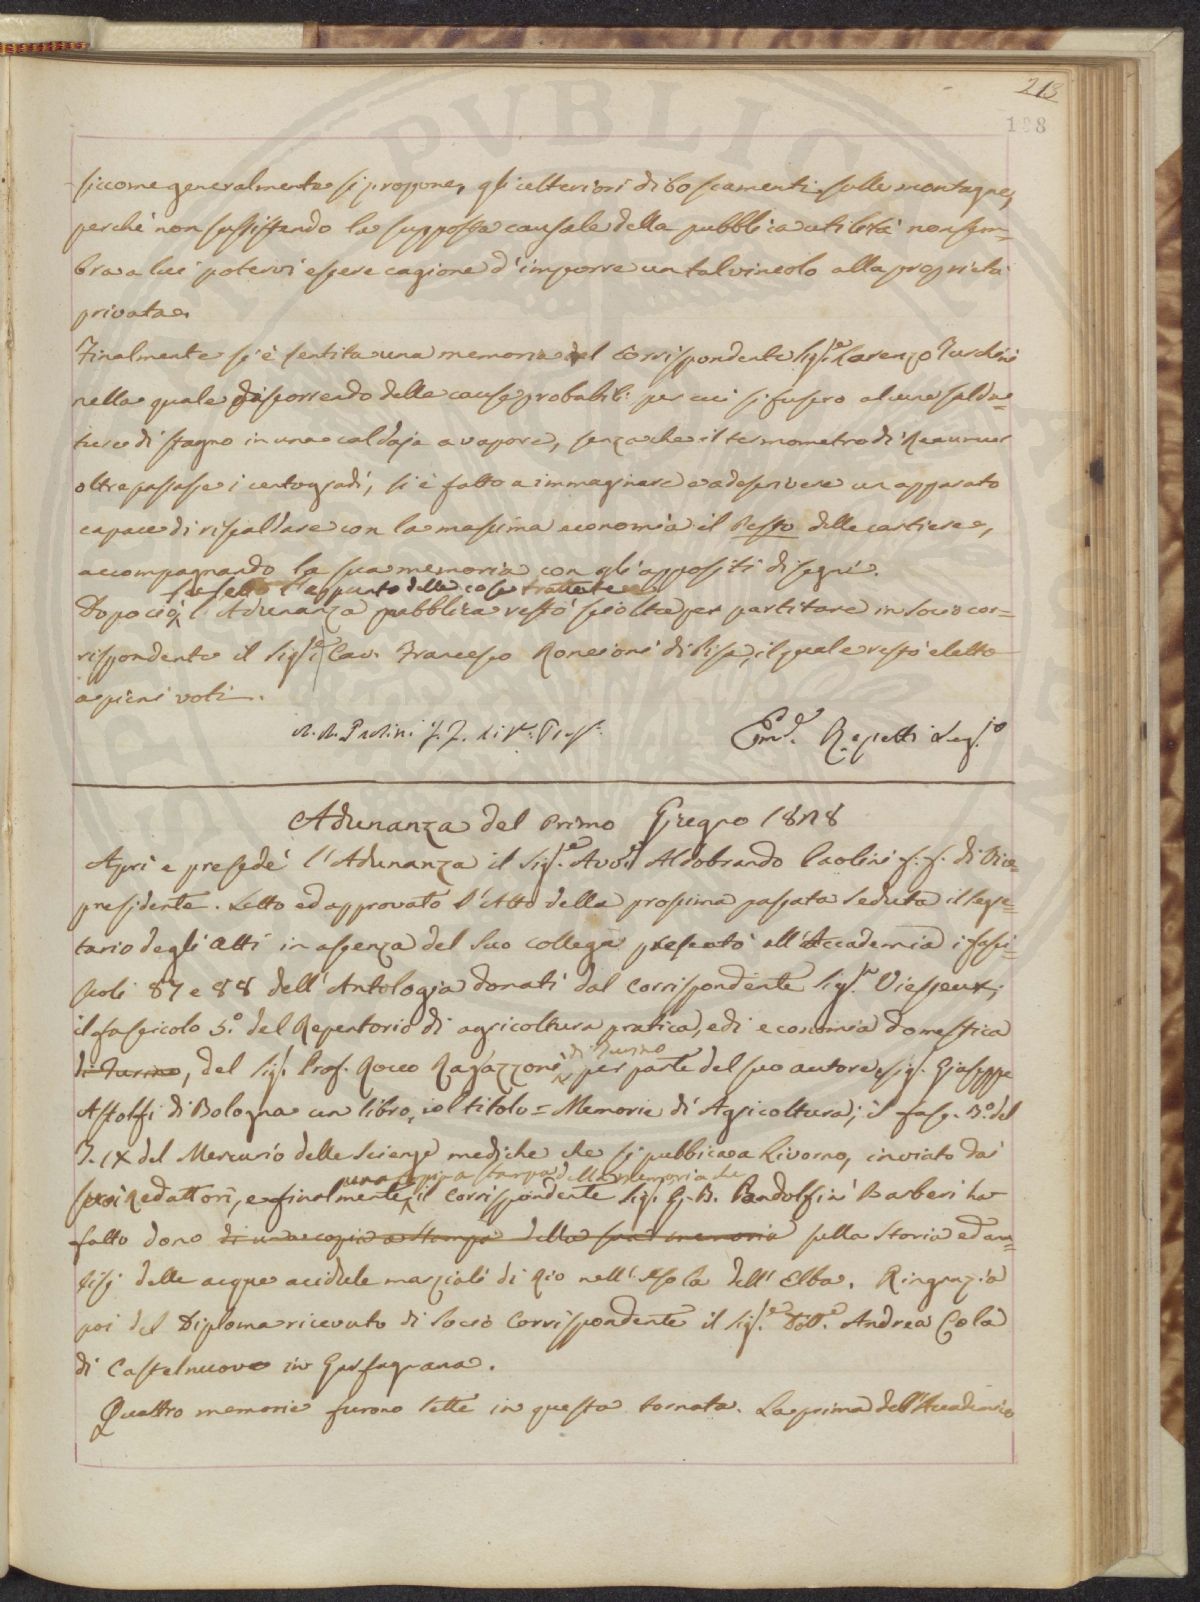 213
188
siccome generalmente si propone, gli ulteriori diboscamenti sulle montagne,
perchè non sussistendo la supposta causale della pubblica utilità non sem=
bra a lui potervi essere cagione d'imporre un tal vincolo alla proprietà
privata.
Finalmente si è sentita una memoria del Corrispondente Sig.e Lorenzo Turchini
nella quale discorrendo delle cause probabili per cui si fusero alcune salda=
ture di stagno in una caldaja a vapore, senza che il termometro di Reaumur
oltrepassasse i cento gradi, si è fatto a immaginare e a descrivere un apparato
capace di riscaldare con la massima economia il Pesto delle cartiere,
accompagnando la sua memoria con gli appositi disegni.
fu fatto l'appunto delle cose trattate e
Dopo ciò l'Adunanza pubblica restò sciolta per partitare in socio cor=
rispondente il Sig.e Cav. Francesco Roncioni di Pisa, il quale restò eletto
a pieni voti.
A. A. Paolini f. f. di V. Pres.
Em. Repetti Seg.io
Adunanza del Primo Giugno 1828
Aprì e presedè l'Adunanza il Sig.e Avv. Aldobrando Paolini f. f. di Vice=
presidente. Letto ed approvato l'Atto della prossima passata Seduta il Segre=
tario degli Atti in assenza del Suo collega presentò all'Accademia i fasci=
scoli 87 e 88 dell'Antologia donati dal Corrispondente Sig.r Viesseux;
il fascicolo 5.o del Repertorio di agricoltura pratica, e di economia domestica
di Turino
di Turino, del Sig. Prof. Rocco Ragazzoni per parte del suo autore, sig. Giuseppe
Astolfi di Bologna un libro, col titolo = Memorie di Agricoltura; il fasc. 3.o del
T. IX del Mercurio delle Scienze mediche che si pubblica a Livorno, inviato dai
una copia a stampa della memoria che
suoi Redattori, e finalmente il Corrispondente Sig. G. B. Pandolfini Barberi ha
fatto dono di una copia a stampa della sua memoria sulla Storia ed ana=
lisi delle acque acidule marziali di Rio nell'Isola dell'Elba. Ringrazia
poi del Diploma ricevuto di Socio Corrispondente il Sig.e Dott.e Andrea Cola
di Castelnuovo in Garfagnana.
Quattro memorie furono lette in questa tornata. La prima dell'Accademico